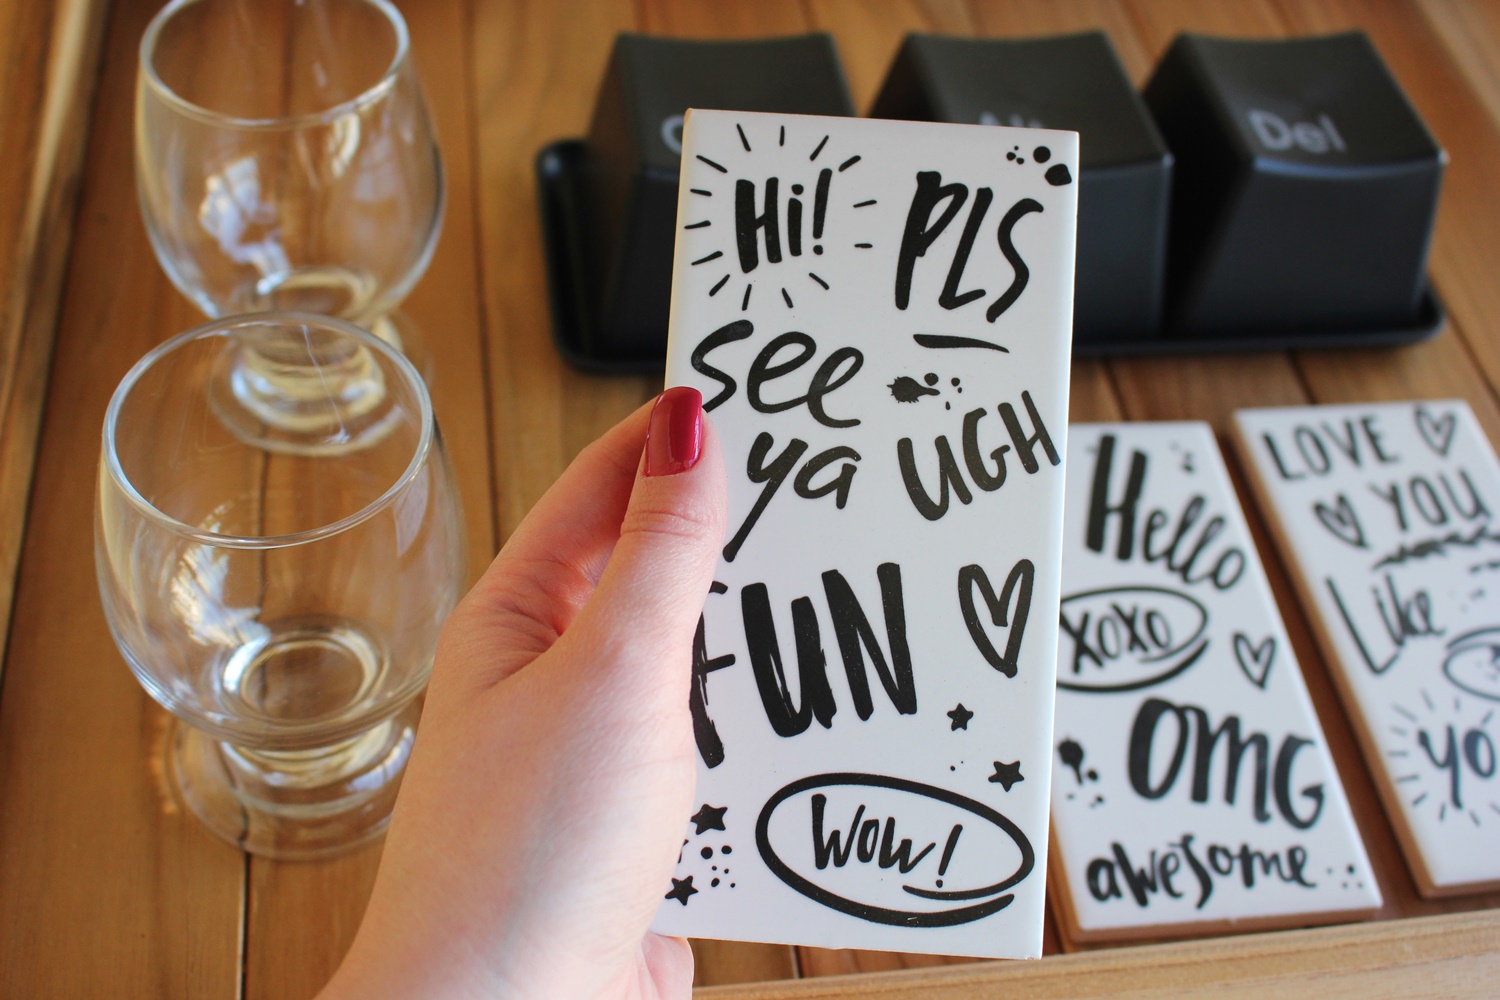 Alt
Del
Hi!
PLS
see
ya
UGH
FUN
Wow!
Hello
xoxo
OMG
awesome
LOVE
YOU
Like
yo